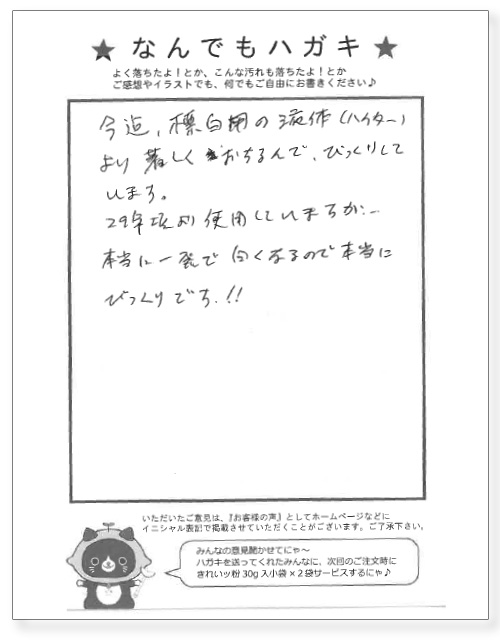 ★ なんでもハガキ ★
よく落ちたよ！とか、こんな汚れも落ちたよ！とか
ご感想やイラストでも、何でもご自由にお書きください♪
今迄、標白用の液体（ハイター）
より著しくおちるんで、びっくりして
います。
29年頃より使用していますが…
本当に一発で白くなるので本当に
びっくりです.!!
いただいたご意見は、『お客様の声』としてホームページなどに
イニシャル表記で掲載させていただくことがございます。ご了承下さい。
みんなの意見聞かせてにゃ〜
ハガキを送ってくれたみんなに、次回のご注文時に
きれいッ粉 30g 入小袋 × 2 袋サービスするにゃ♪